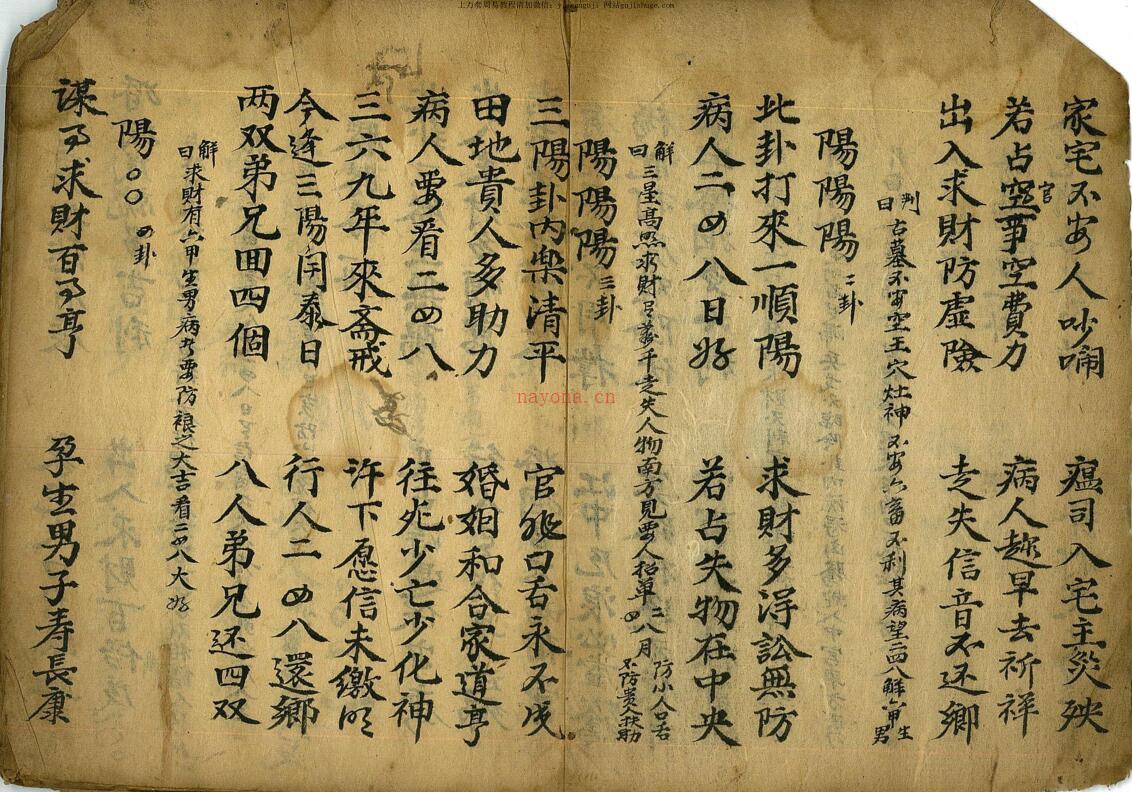 上万套周易教程请加微信：  网站gujishuge.com
家宅不安人吵鬧 瘟司入宅主災殃
若占空官事空費力 病人趂早去祈祥
出入求財防虛險 走失信音不还鄉
陽陽陽 二卦
判曰 古墓不安空王穴灶神不安六畜不利其病望二四八解六甲生男
此卦打來一順陽 求財多淂訟無防
病人二四八日好 若占失物在中央
陽陽陽 三卦
解曰 三星高照求財千走失人物南方見要人招單二四八月防小人口舌不防貴人扶助
三陽卦內樂清平 官非口舌永不成
田地貴人多助力 婚姻和合家道亨
病人要看二四八 往死少亡少化神
三六九年來斎戒 許下愿信未繳
今逢三陽開泰日 行人二四八還鄉
两双弟兄四個 八人弟兄还四双
解曰 求財有六甲生男病者要防禳之大吉看二四八大好
陽○○ 四卦
謀事求財百事亨 孕生男子寿長康
nayona.cn